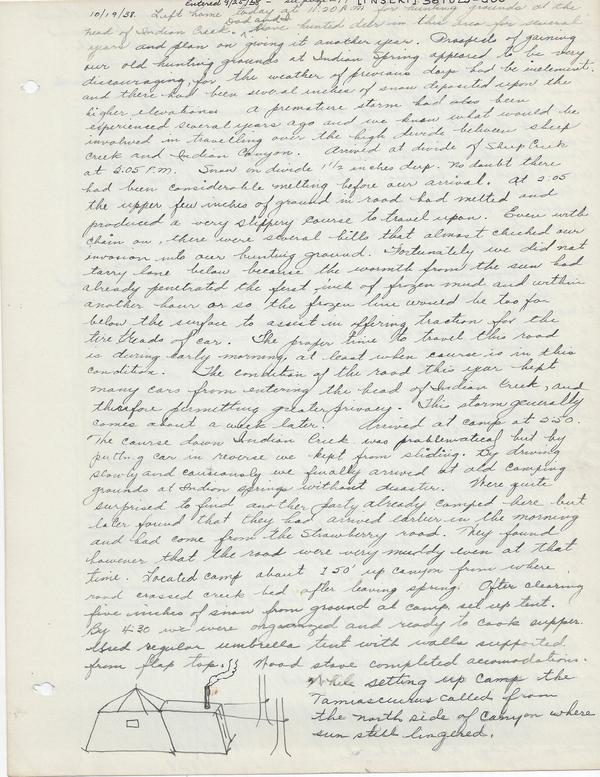 Entered 9/25/38 - see page 11 [INSERT] 381025-
10/19/38. Left home today at 11:20 A.M. for hunting grounds at the
head of Indian Creek. Dad and I have hunted deer in this area for several
years and plan on giving it another year. Prospects of gaining
our old hunting grounds at Indian Spring appeared to be very
discouraging, for the weather of previous days had be inclement.
and there had been several inches of snow deposited upon the
higher elevations. A premature storm had also been
experienced several years ago and we know what would be
involved in travelling over the high divide between Sheep
Creek and Indian Canyon. Arrived at divide of Sheep Creek
at 2:05 P.M. Snow on divide 1 1/2 inches deep. No doubt there
had been considerable melting before our arrival. At 2:05
the upper few inches of ground in road had melted and
produced a very slippery course to travel upon. Even with
chain on, there were several hills that almost checked our
invasion into our hunting ground. Fortunately we did not
tarry long below because the warmth from the sun had
already penetrated the first inch of frozen mud and within
another hour or so the frozen line would be too far
below the surface to assist in offering traction for the
tire treads of car. The proper time to travel this road
is during early morning, at least when course is in this
condition. The condition of the road this year kept
many cars from entering the head of Indian Creek, and
therefore permitting greater privacy. This storm generally
comes about a week later. Arrived at camp at 2:50.
The course down Indian Creek was problematical but by
putting car in reverse we kept from sliding. By driving
slowly and cautiously we finally arrived at old camping
grounds at Indian Springs without disaster. Were quite
surprised to find another party already camped here but
later found that they had arrived earlier in the morning
and had come from the Strawberry road. They found
however that the road were very muddy even at that
time. Located camp about 150' up canyon from where
road crossed creek bed after leaving spring. After clearing
five inches of snow from ground at camp set up tent.
By 4:30 we were organized and ready to cook supper.
Used regular umbrella tent with walls supported
from flap top. Wood stove completed acomodations.
While setting up camp the
Tamiasciurus called from
the north side of Canyon where
sun still lingered.